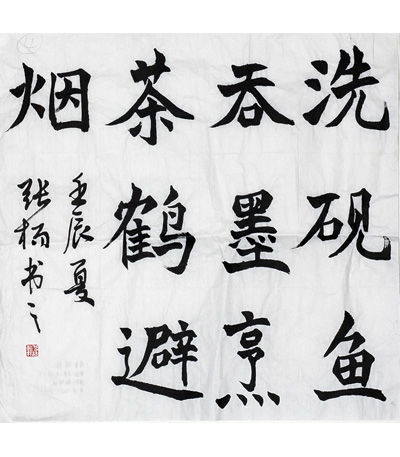 洗砚鱼
吞墨烹
茶鹤避
烟
壬辰夏
张柄书之